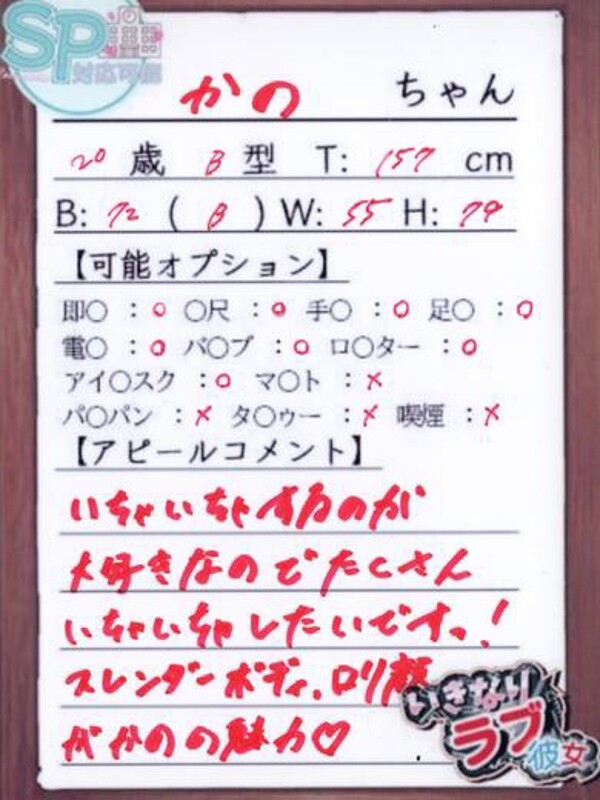 SP
対応可能
かの ちゃん
20 歳 B 型 T: 157 cm
B: 72 ( B ) W: 55 H: 79
【可能オプション】
即〇 :○ 〇尺 :○ 手〇 :○ 足〇 :○
電〇 :○ バ〇ブ :○ ロ〇ター :○
アイ〇スク :○ マ〇ト :×
パ〇パン :× タ〇ゥー :× 喫煙 :×
【アピールコメント】
いちゃいちゃするのが
大好きなのでたくさん
いちゃいちゃしたいですっ!
スレンダーボディ、ロリ顔
がかのの魅力♡
いきなり
ラブ彼女